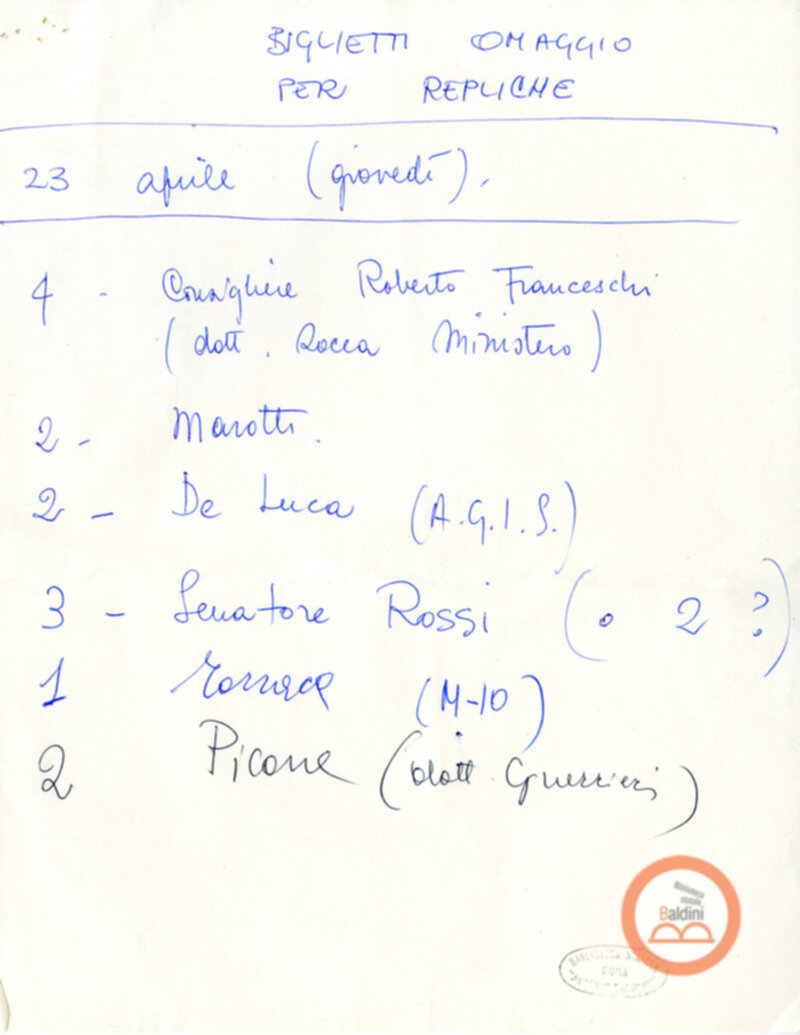 BIGLIETTI OMAGGIO
PER REPLICHE
23 aprile (giovedì).
4 - Consigliere Roberto Franceschi
(dott. Rocca Ministero)
2 - Marotti.
2 - De Luca (A.G.I.S.)
3 - Senatore Rossi (o 2 ?)
1 (M-10)
2 Picone (dott. Guerrieri)
Biblioteca
statale
Baldini
ROMA